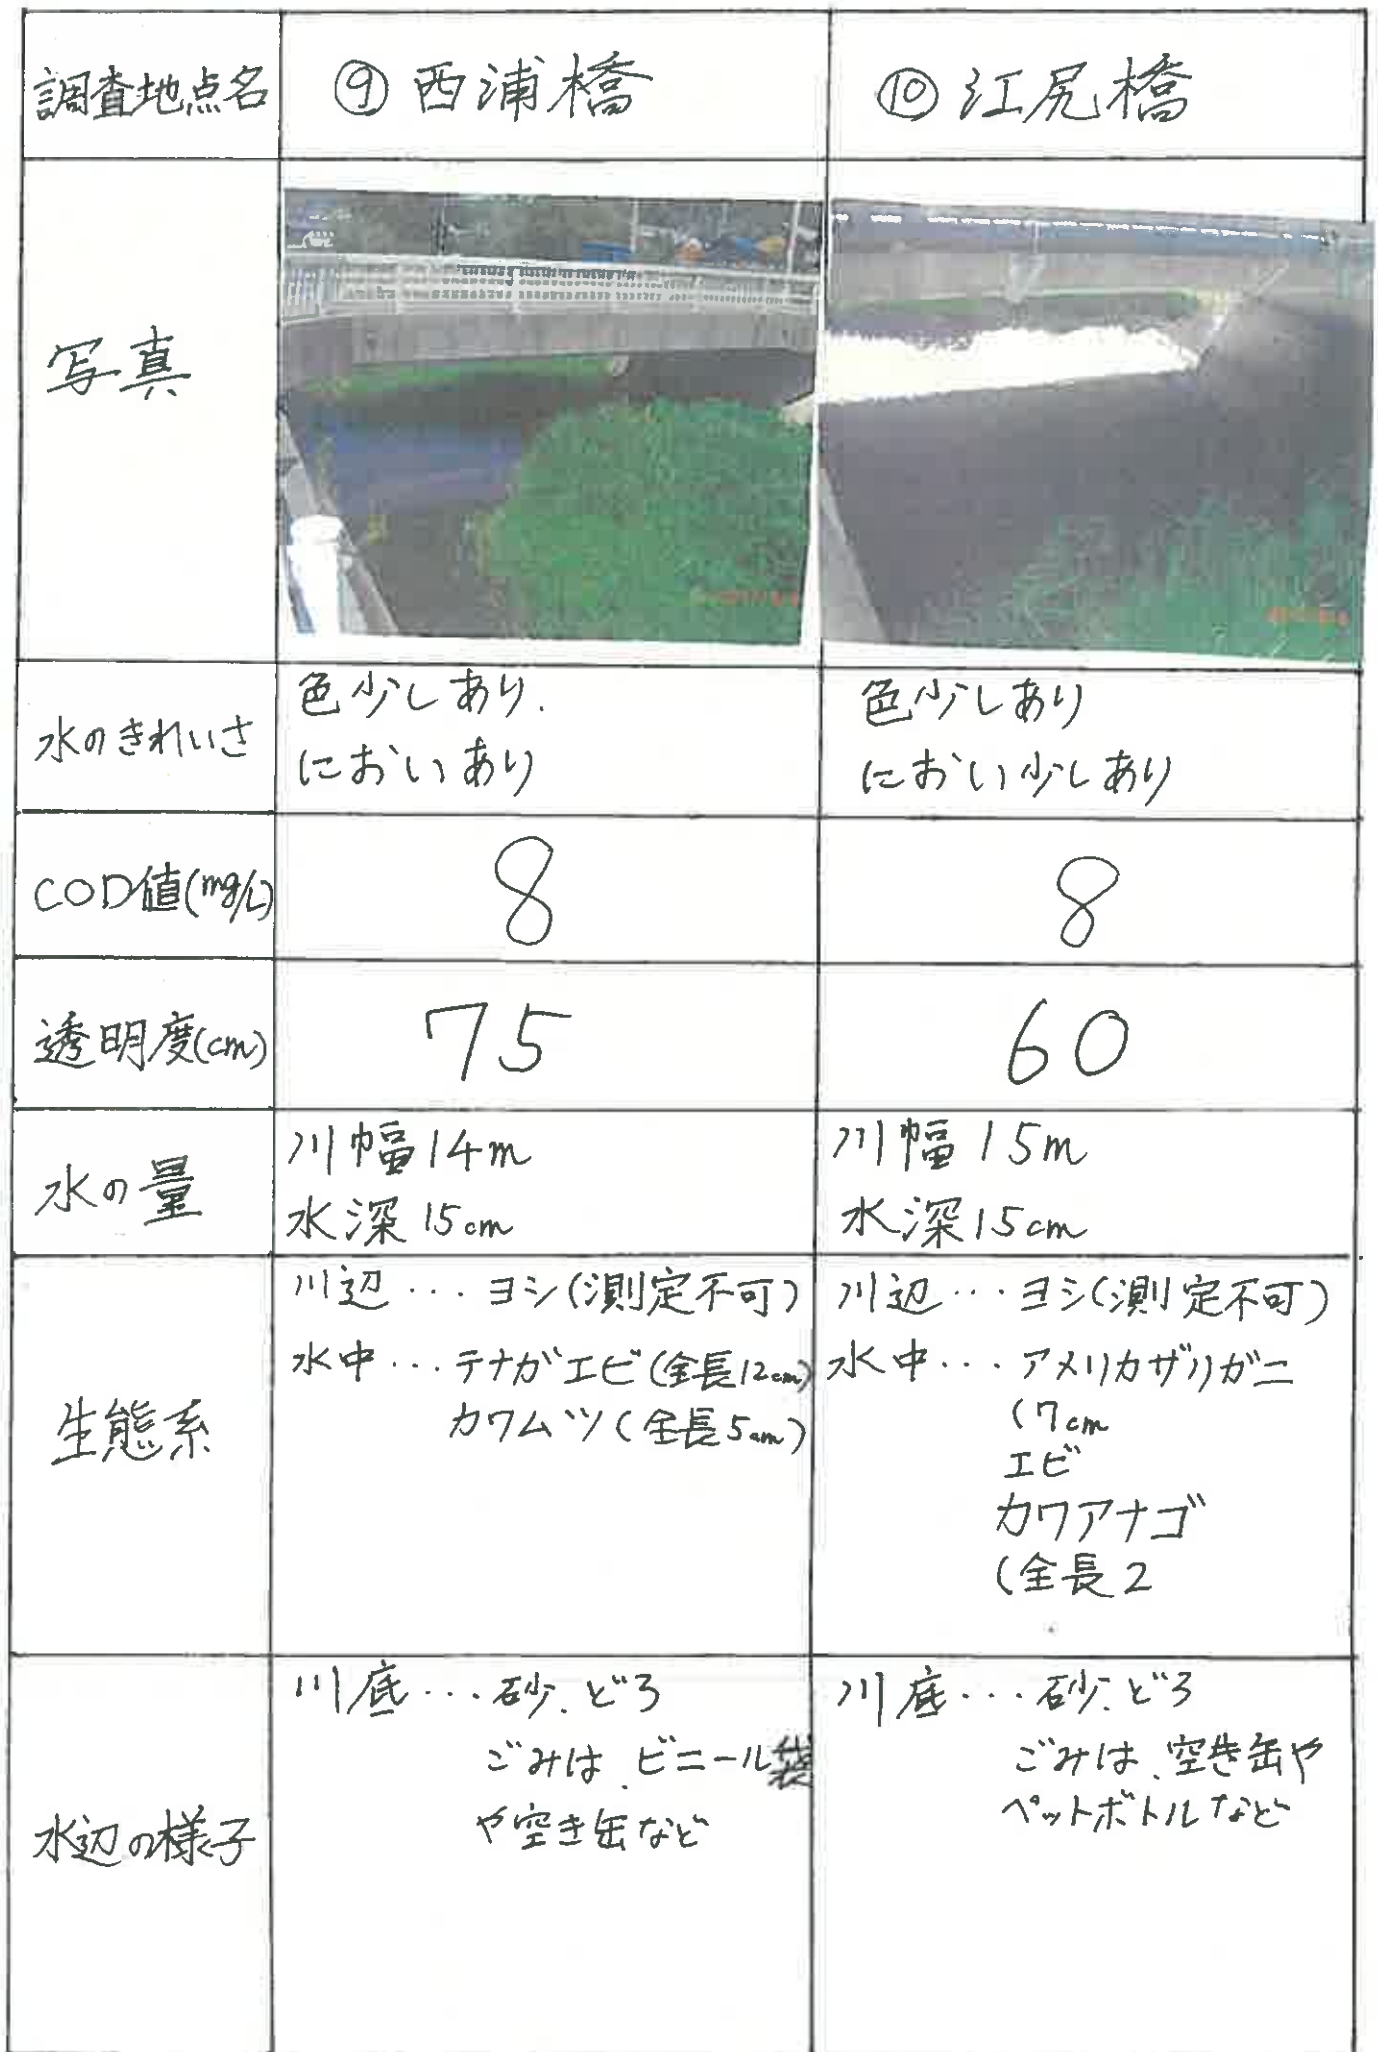 調査地点名
⑨西浦橋
⑩江尻橋
写真
水のきれいさ
色少しあり.
においあり
色少しあり
におい少しあり
COD値(mg/L)
8
8
透明度(cm)
75
60
水の量
川幅14m
水深15cm
川幅15m
水深15cm
生態系
川辺…ヨシ(測定不可)
水中…テナガエビ(全長12cm)
カワムツ(全長5cm)
川辺…ヨシ(測定不可)
水中…アメリカザリガニ
(7cm
エビ
カワアナゴ
(全長2
水辺の様子
川底…砂、どろ
ごみは、ビニール袋
や空き缶など
川底…砂、どろ
ごみは、空き缶や
ペットボトルなど